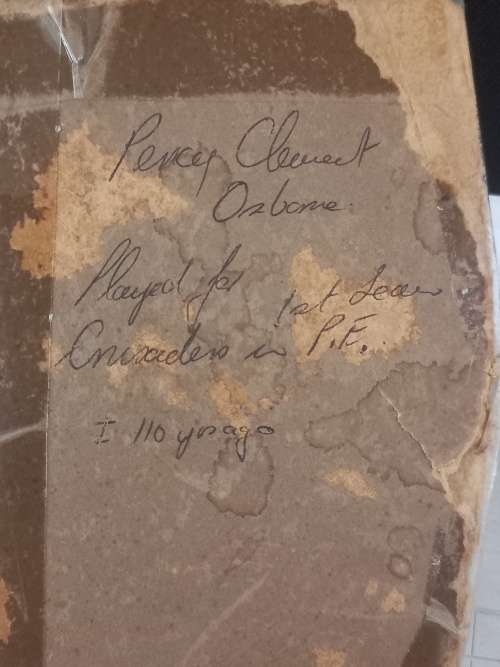 Percy Clement
Osborne.
Played for 1st Team
Crusaders in P.E.
I 110 yrs ago